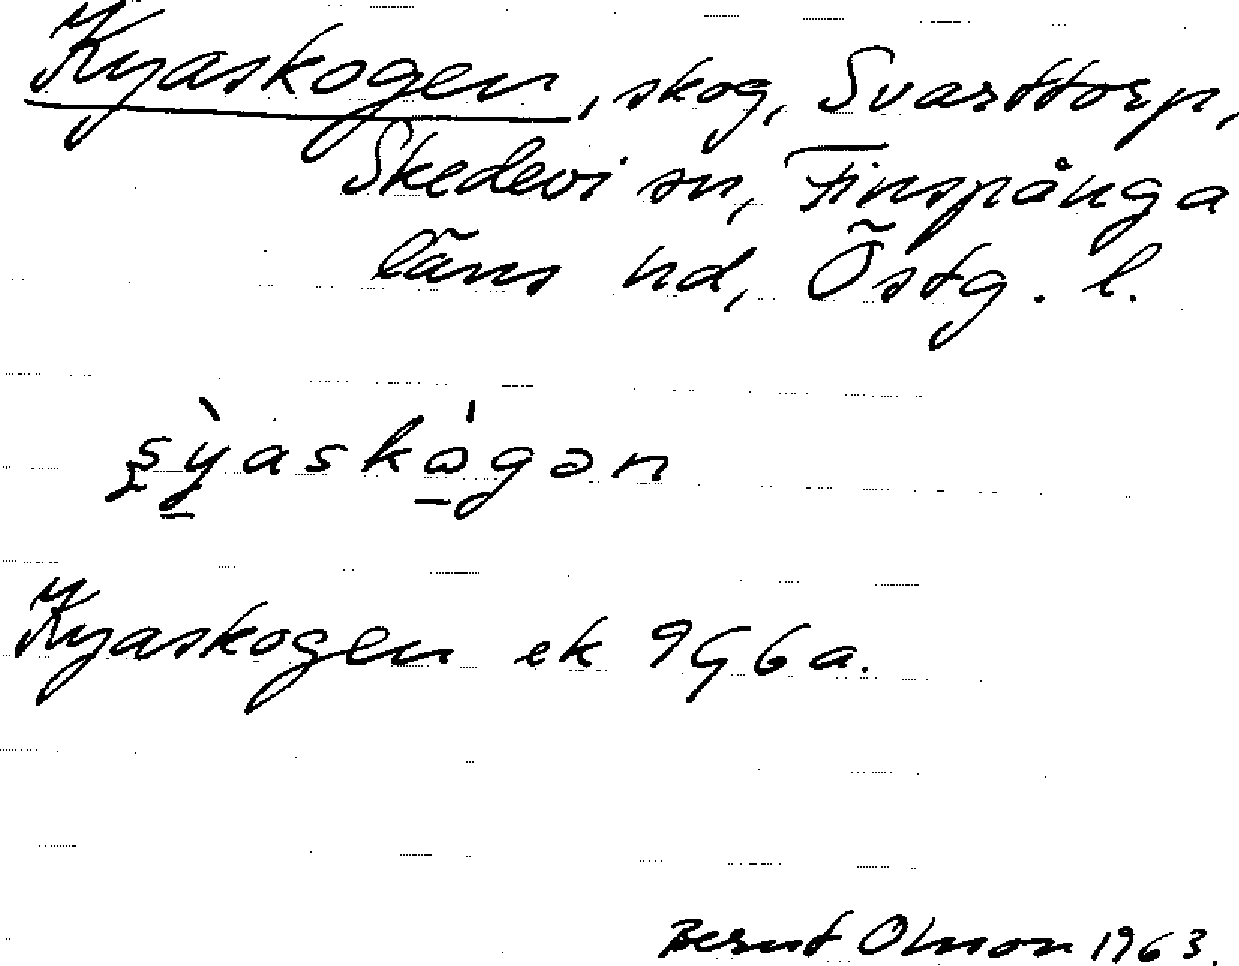 Kyaskogen, skog, Svarttorp,
Skedevi sn, Finspånga
läns hd, Östg. l.
Kyaskogen ek 9G6a.
Bernt Olsson 1963.